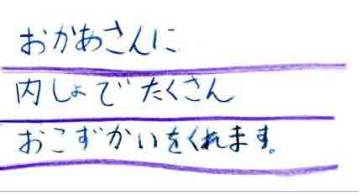 おかあさんに
内しょでたくさん
おこずかいをくれます。